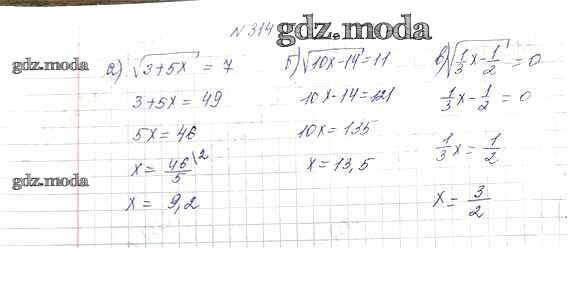 N 314
gdz.moda
gdz.moda
а) √3+5x = 7
3+5x = 49
5x = 46
x = 46/5 \2
x = 9,2
б) √10x-14 = 11
10x-14 = 121
10x = 135
x = 13,5
в) √1/3 x - 1/2 = 0
1/3 x - 1/2 = 0
1/3 x = 1/2
x = 3/2
gdz.moda